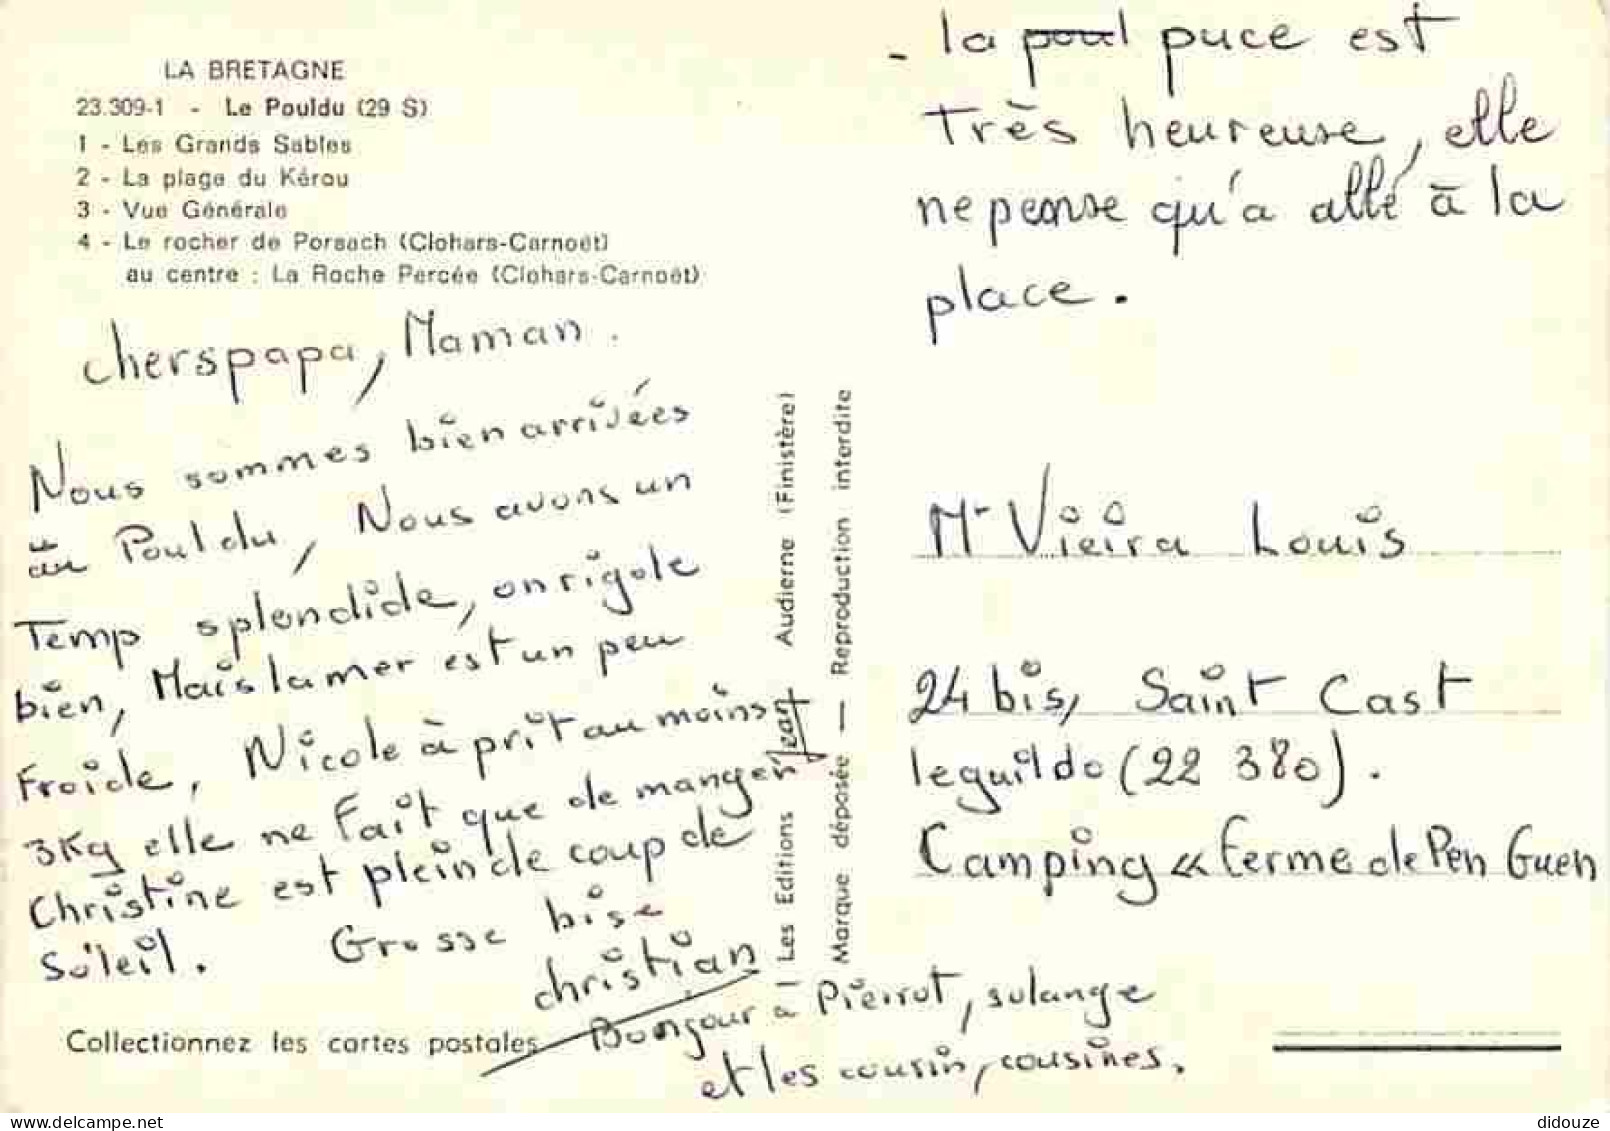 LA BRETAGNE
23.309-1 - Le Pouldu (29 S)
1 - Les Grands Sables
2 - La plage du Kérou
3 - Vue Générale
4 - Le rocher de Porsach (Clohars-Carnoët)
au centre : La Roche Percée (Clohars-Carnoët)
chers papa, Maman.
Nous sommes bien arrivées
au Pouldu, Nous avons un
Temp splendide, on rigole
bien, Mais la mer est un peu
Froide, Nicole à prit au moins
3Kg elle ne Fait que de manger
Christine est plein de coup de
Soleil. Grosse bise
christian
Jean
Bonjour à Pierrot, solange
et les cousin, cousines.
Collectionnez les cartes postales
Les Editions Jean Audierne (Finistère)
Marque déposée — Reproduction interdite
- la poul puce est
Très heureuse, elle
ne pense qu'a allé à la
place.
Mr Vieira Louis
24 bis, Saint Cast
leguildo (22 380).
Camping « Ferme de Pen Guen
didouze